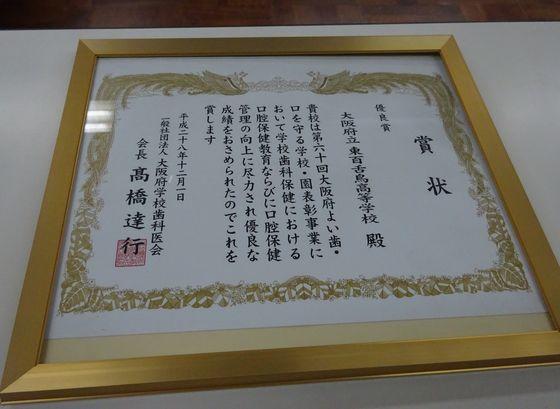 賞状
優良賞
大阪府立東百舌鳥高等学校 殿
貴校は第六十回大阪府よい歯・
口を守る学校・園表彰事業に
おいて学校歯科保健における
口腔保健教育ならびに口腔保健
管理の向上に尽力され優良な
成績をおさめられたのでこれを
賞します
平成二十八年十二月一日
一般社団法人 大阪府学校歯科医会
会長 髙橋達行